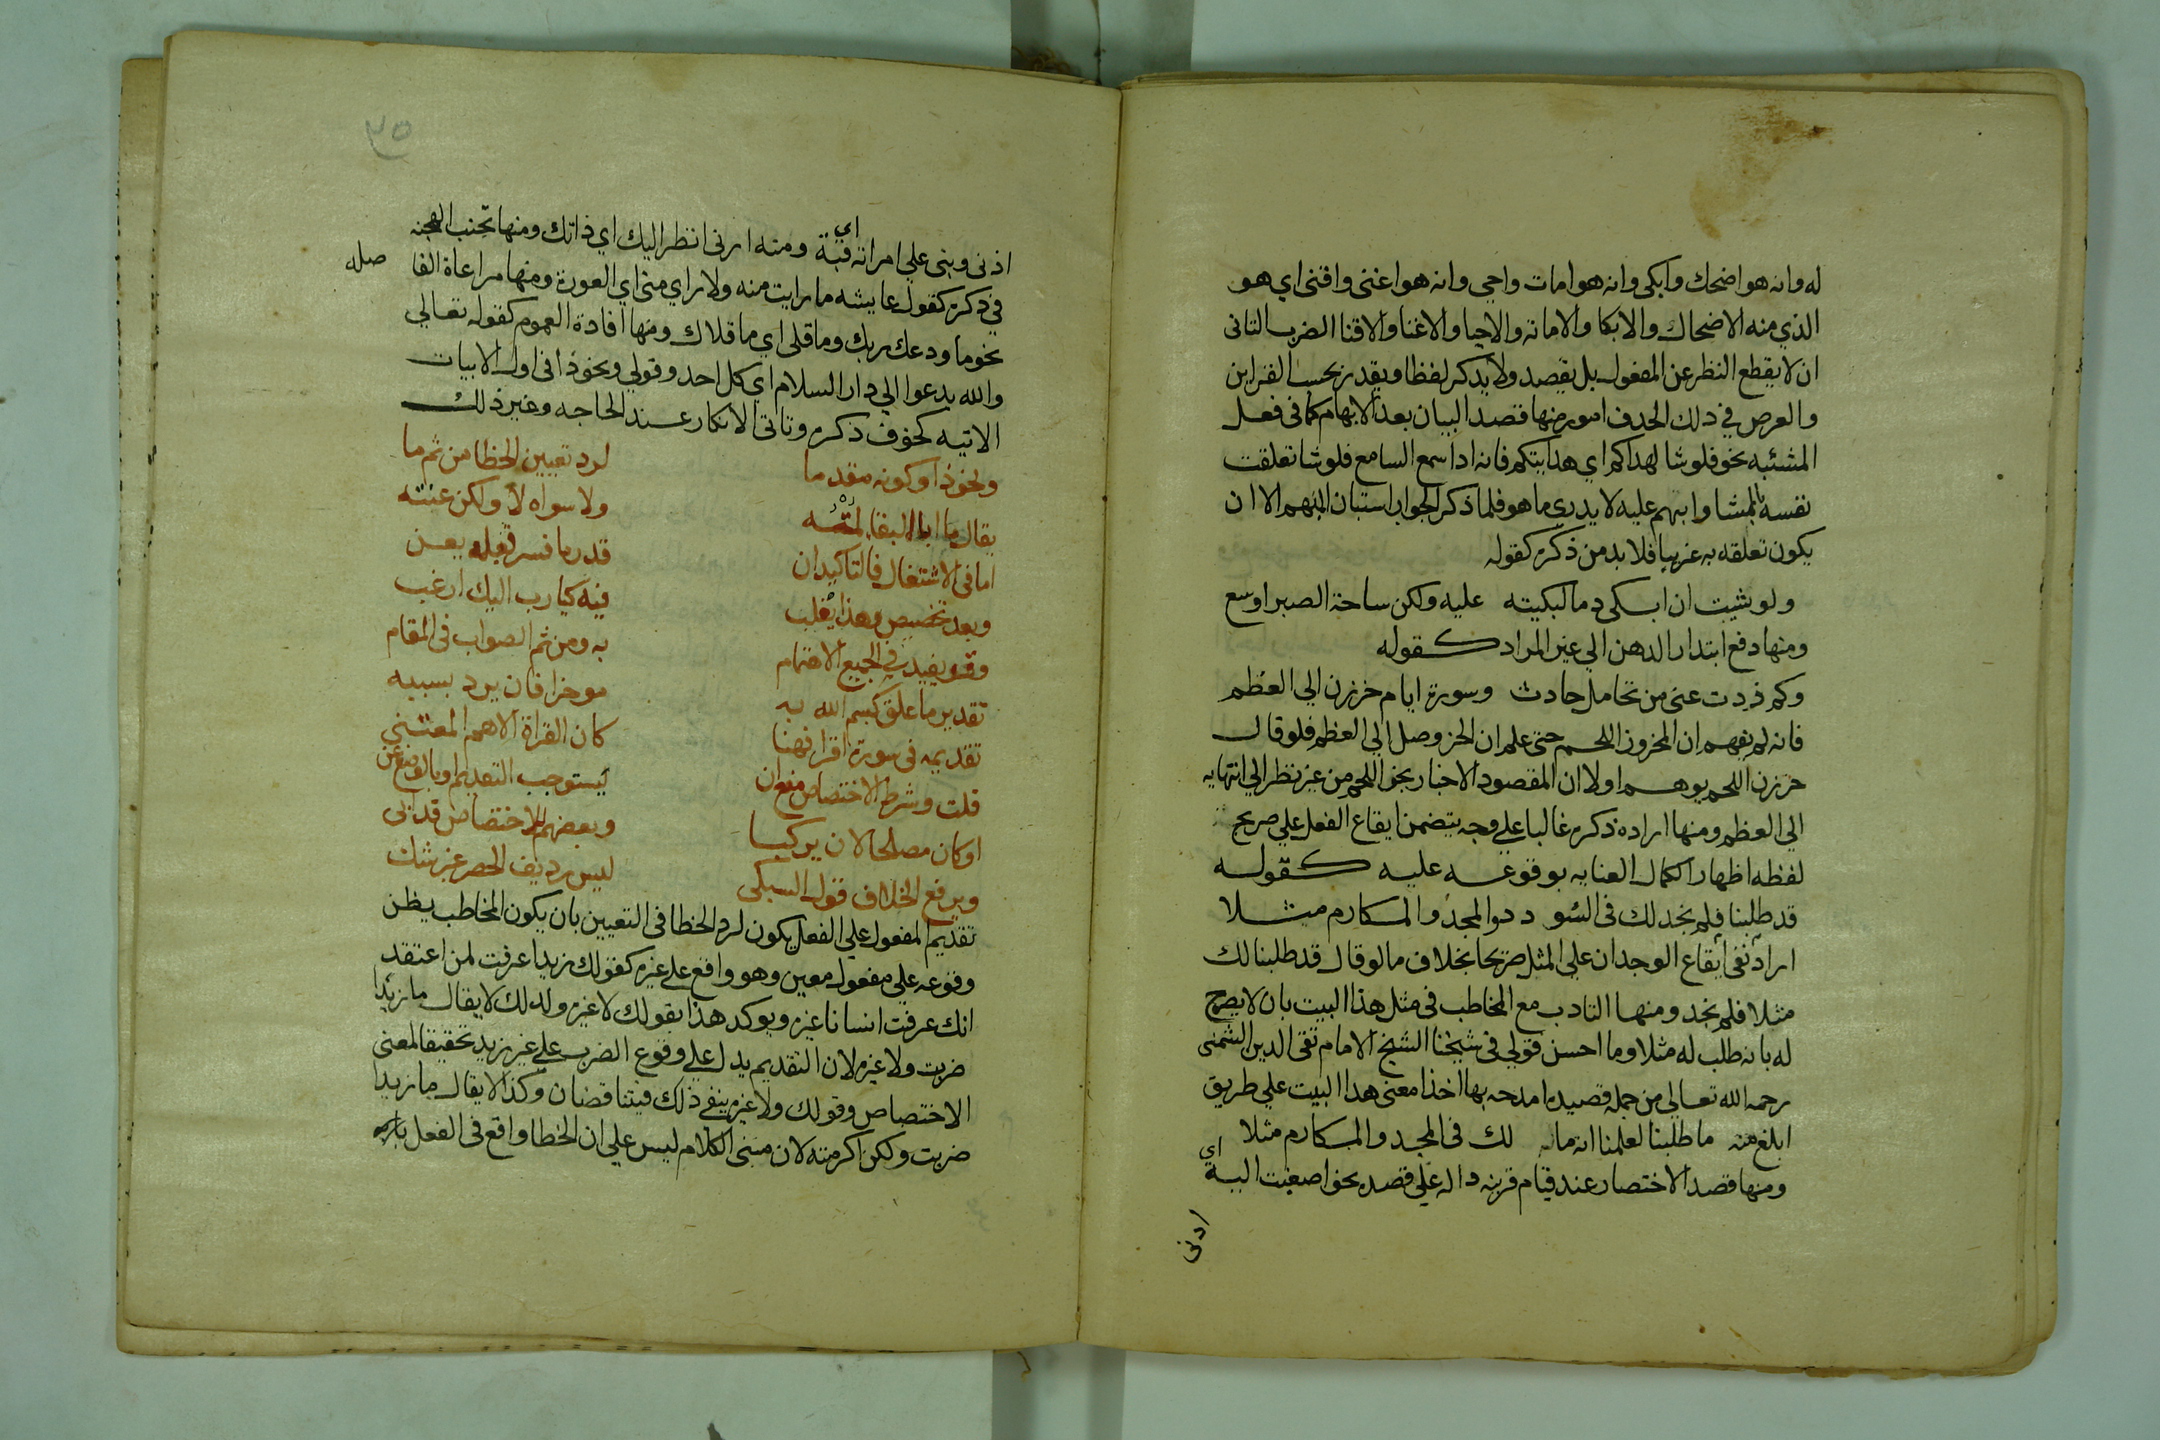 له وانه هو اضحك وابكى وانه هو امات واحيى وانه هو اغنى واقنى اي هو
الذي منه الاضحاك والابكا والاماته والاحيا والاغنا والاقنا الضرب الثانى
ان لا يقطع النظر عن المفعول بل يقصد ولا يذكر لفظا ويقدر بحسب القراين
والغرض في ذلك الحذف امور منها قصد البيان بعد الابهام كما في فعل
المشئيه نحو فلو شا لهداكم اي هدايتكم فانه اذا سمع السامع فلو شا تعلقت
نفسه بالمشا وانبهم عليه لا يدري ما هو فلما ذكر الجواب استبان المبهم الا ان
يكون تعلقه به غريبا فلا بد من ذكره كقوله
ولو شيت ان ابكى دما لبكيته عليه ولكن ساحة الصبر اوسع
ومنها دفع ابتدار الذهن الي غير المراد كقوله
وكم ذدت عنى من تحامل حادث وسورة ايام حززن الي العظم
فانه لم يفهم ان المحزوز اللحم حتى علم ان الحز وصل الي العظم فلو قال
حززن اللحم يوهم اولا ان المقصود الاخبار بحز اللحم من غير نظر الي انتهايه
الي العظم ومنها اراده ذكره غالبا علي وجه يتضمن ايقاع الفعل علي صريح
لفظه اظهارا لكمال العنايه بوقوعه عليه كقوله
قد طلبنا فلم نجد لك في السو دد والمجد والمكارم مثلا
اراد نفى ايقاع الوجدان علي المثل صريحا بخلاف ما لو قال قد طلبنا لك
مثلا فلم نجد ومنها التادب مع المخاطب في مثل هذا البيت بان لا يصرح
له بانه طلب له مثلا وما احسن قولي في شيخنا الشيخ الامام تقى الدين الشمنى
رحمه الله تعالي من جمله قصيده امدحه بها اخذا معنى هذا البيت علي طريق
ابلغ منه ما طلبنا لعلمنا انه ما لك في المجد والمكارم مثلا
ومنها قصد الاختصار عند قيام قرينه داله علي قصده نحو اصغيت اليه اي
اذنى
٣٥
اذنى وبنى علي امراته اي قبة ومنه ارنى انظر اليك اي ذاتك ومنها تجنب الهجنه
في ذكره كقول عايشه ما رايت منه ولا راي منى اي العورة ومنها مراعاة الفا صله
نحو ما ودعك ربك وما قلى اي ما قلاك ومنها افادة العموم كقوله تعالي
والله يدعوا الي دار السلام اي كل احد وقولي ونحو ذا في اول الابيات
الاتيه كخوف ذكره وتاتى الانكار عند الحاجه وغير ذلك
ونحو ذا وكونه مقدما لرد تعيين الخطا من ثم ما
يقال ما ولا سواه لا ولكن عنته
اما في الاشتغال فالتاكيد ان قدر ما فسر قبله يعن
وبعد تخصيص وهذا يغلب فيه كيا رب اليك ارغب
وقد يفيد في الجميع الاهتمام به ومن ثم الصواب في المقام
تقدير ما علق كبسم الله به موخرا فان يرد بسببه
تقديمه في سورة اقرا فهنا كان القراة الاهم المعتنى
قلت وشرط الاختصاص منع ان يستوجب التقديم وبالوضع عن
او كان مصلحا لان يركبا وبعضهم للاختصاص قد ابى
ويرفع الخلاف قول السبكى ليس رديف الحصر غير شك
تقديم المفعول علي الفعل يكون لرد الخطا في التعيين بان يكون المخاطب يظن
وقوعه علي مفعول معين وهو واقع علي غيره كقولك زيدا عرفت لمن اعتقد
انك عرفت انسانا غيره ويوكد هذا بقولك لا غيره ولذلك لا يقال ما زيدا
ضربت ولا غيره لان التقديم يدل علي وقوع الضرب علي غير زيد تحقيقا لمعنى
الاختصاص وقولك ولا غيره ينفى ذلك فيتناقضان وكذا لا يقال ما زيدا
ضربت ولكن اكرمته لان مبنى الكلام ليس علي ان الخطا واقع في الفعل بانه